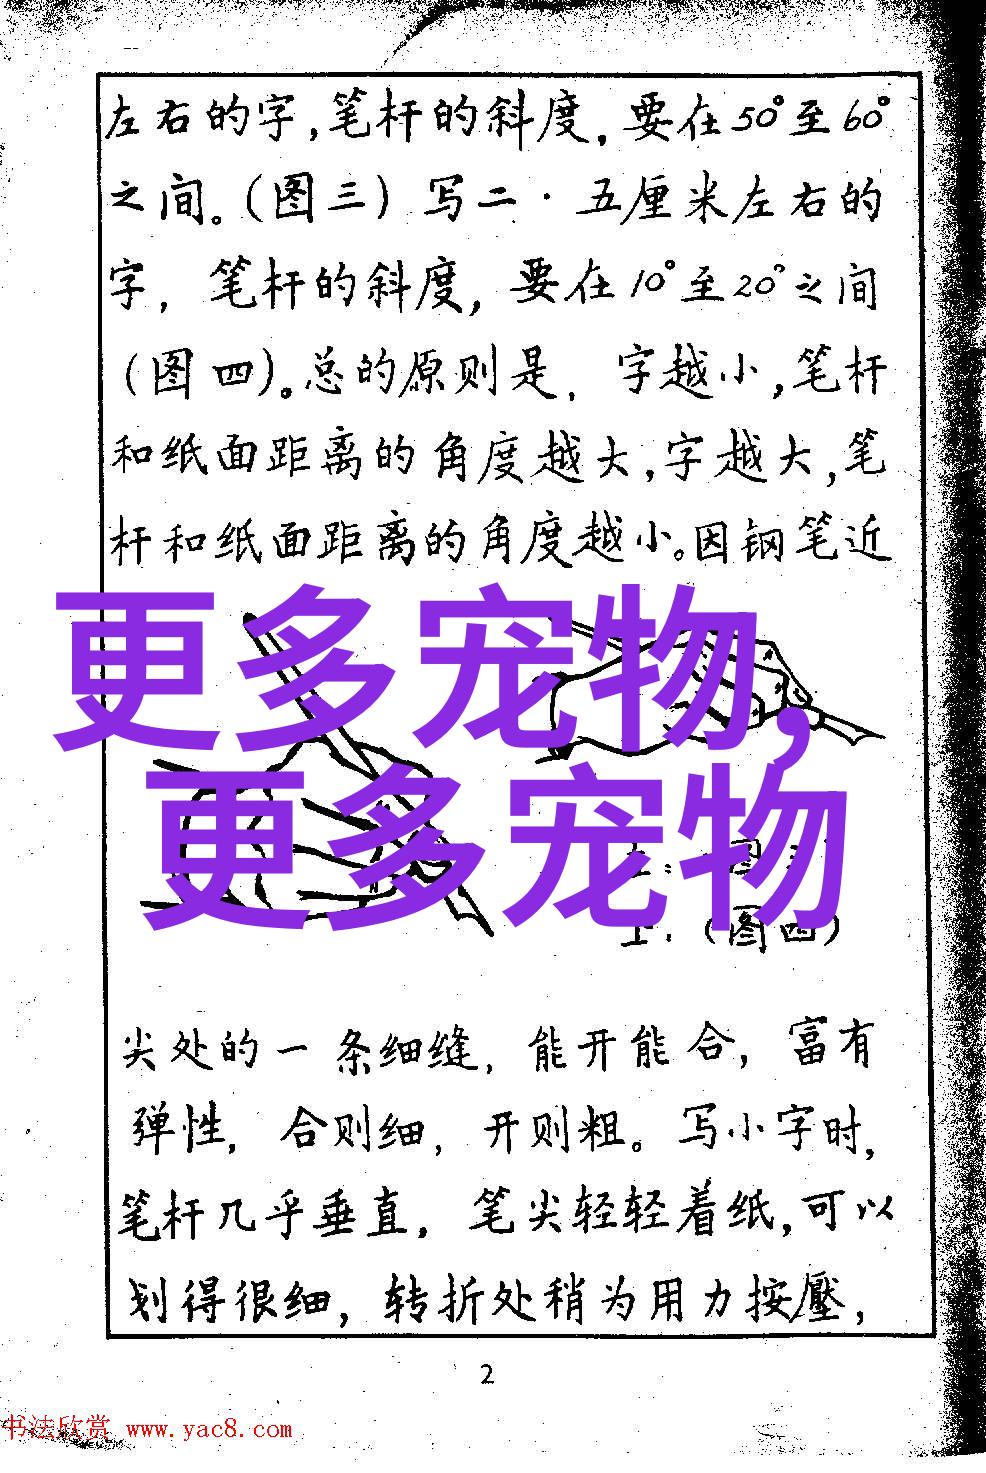 左右的字,笔杆的斜度,要在50°至60°
之间。(图三)写二·五厘米左右的
字,笔杆的斜度,要在10°至20°之间
(图四)。总的原则是,字越小,笔杆
和纸面距离的角度越大,字越大,笔
杆和纸面距离的角度越小。因钢笔近
更多宠物,
更多宠物
上.(图四)
尖处的一条细缝,能开能合,富有
弹性,合则细,开则粗。写小字时,
笔杆几乎垂直,笔尖轻轻着纸,可以
划得很细,转折处稍为用力按壓,
2
书法欣赏 www.yac8.com